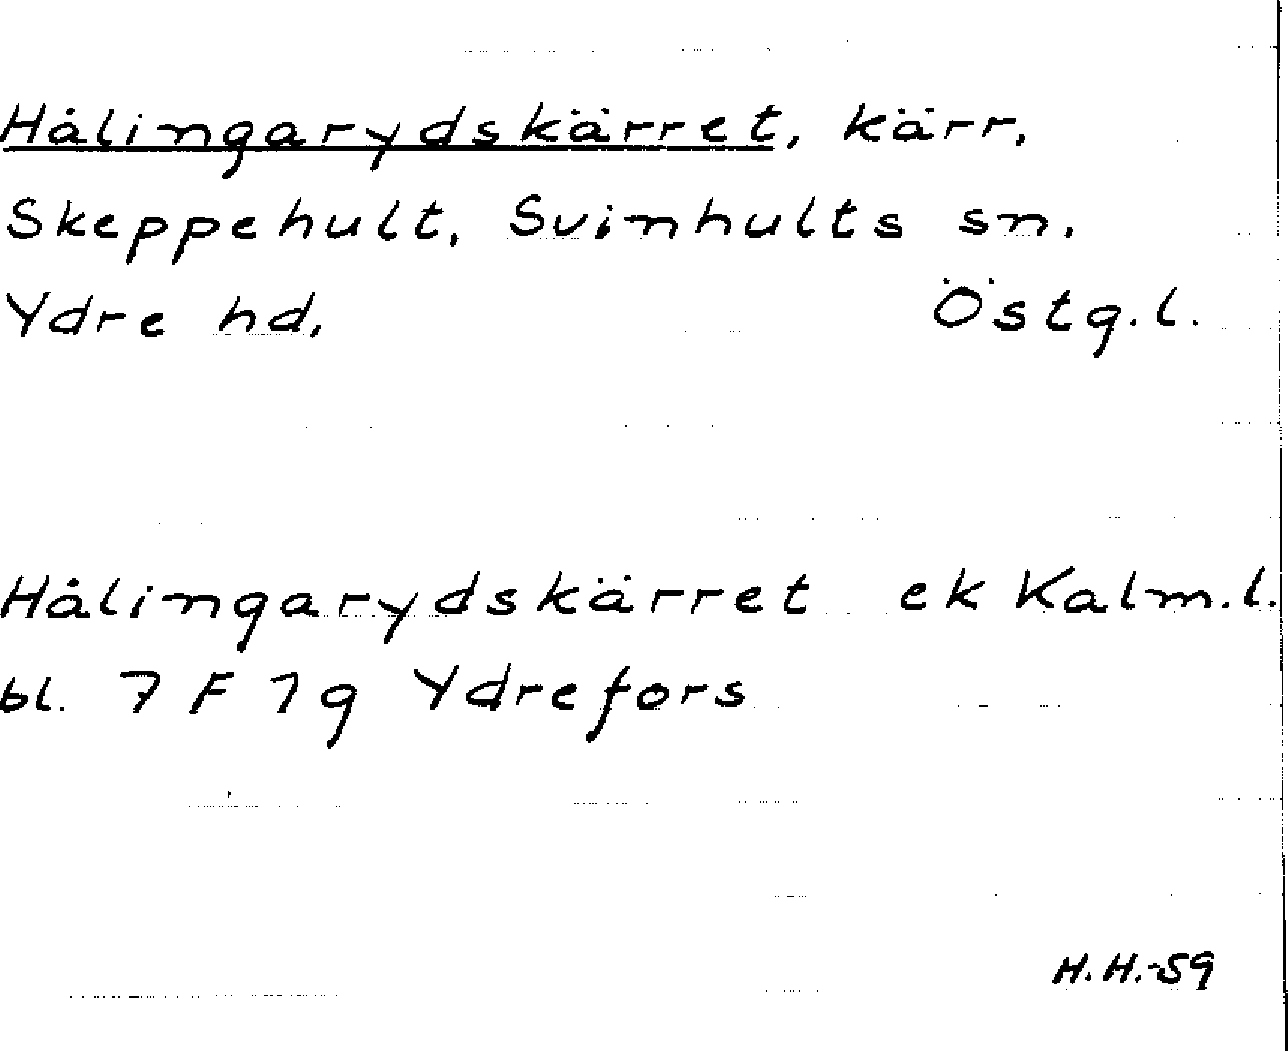 Hålingarydskärret, kärr,
Skeppehult, Svinhults sn,
Ydre hd, Östg.l.
Hålingarydskärret ek Kalm.l.
bl. 7 F 1g Ydrefors
H.H.-59